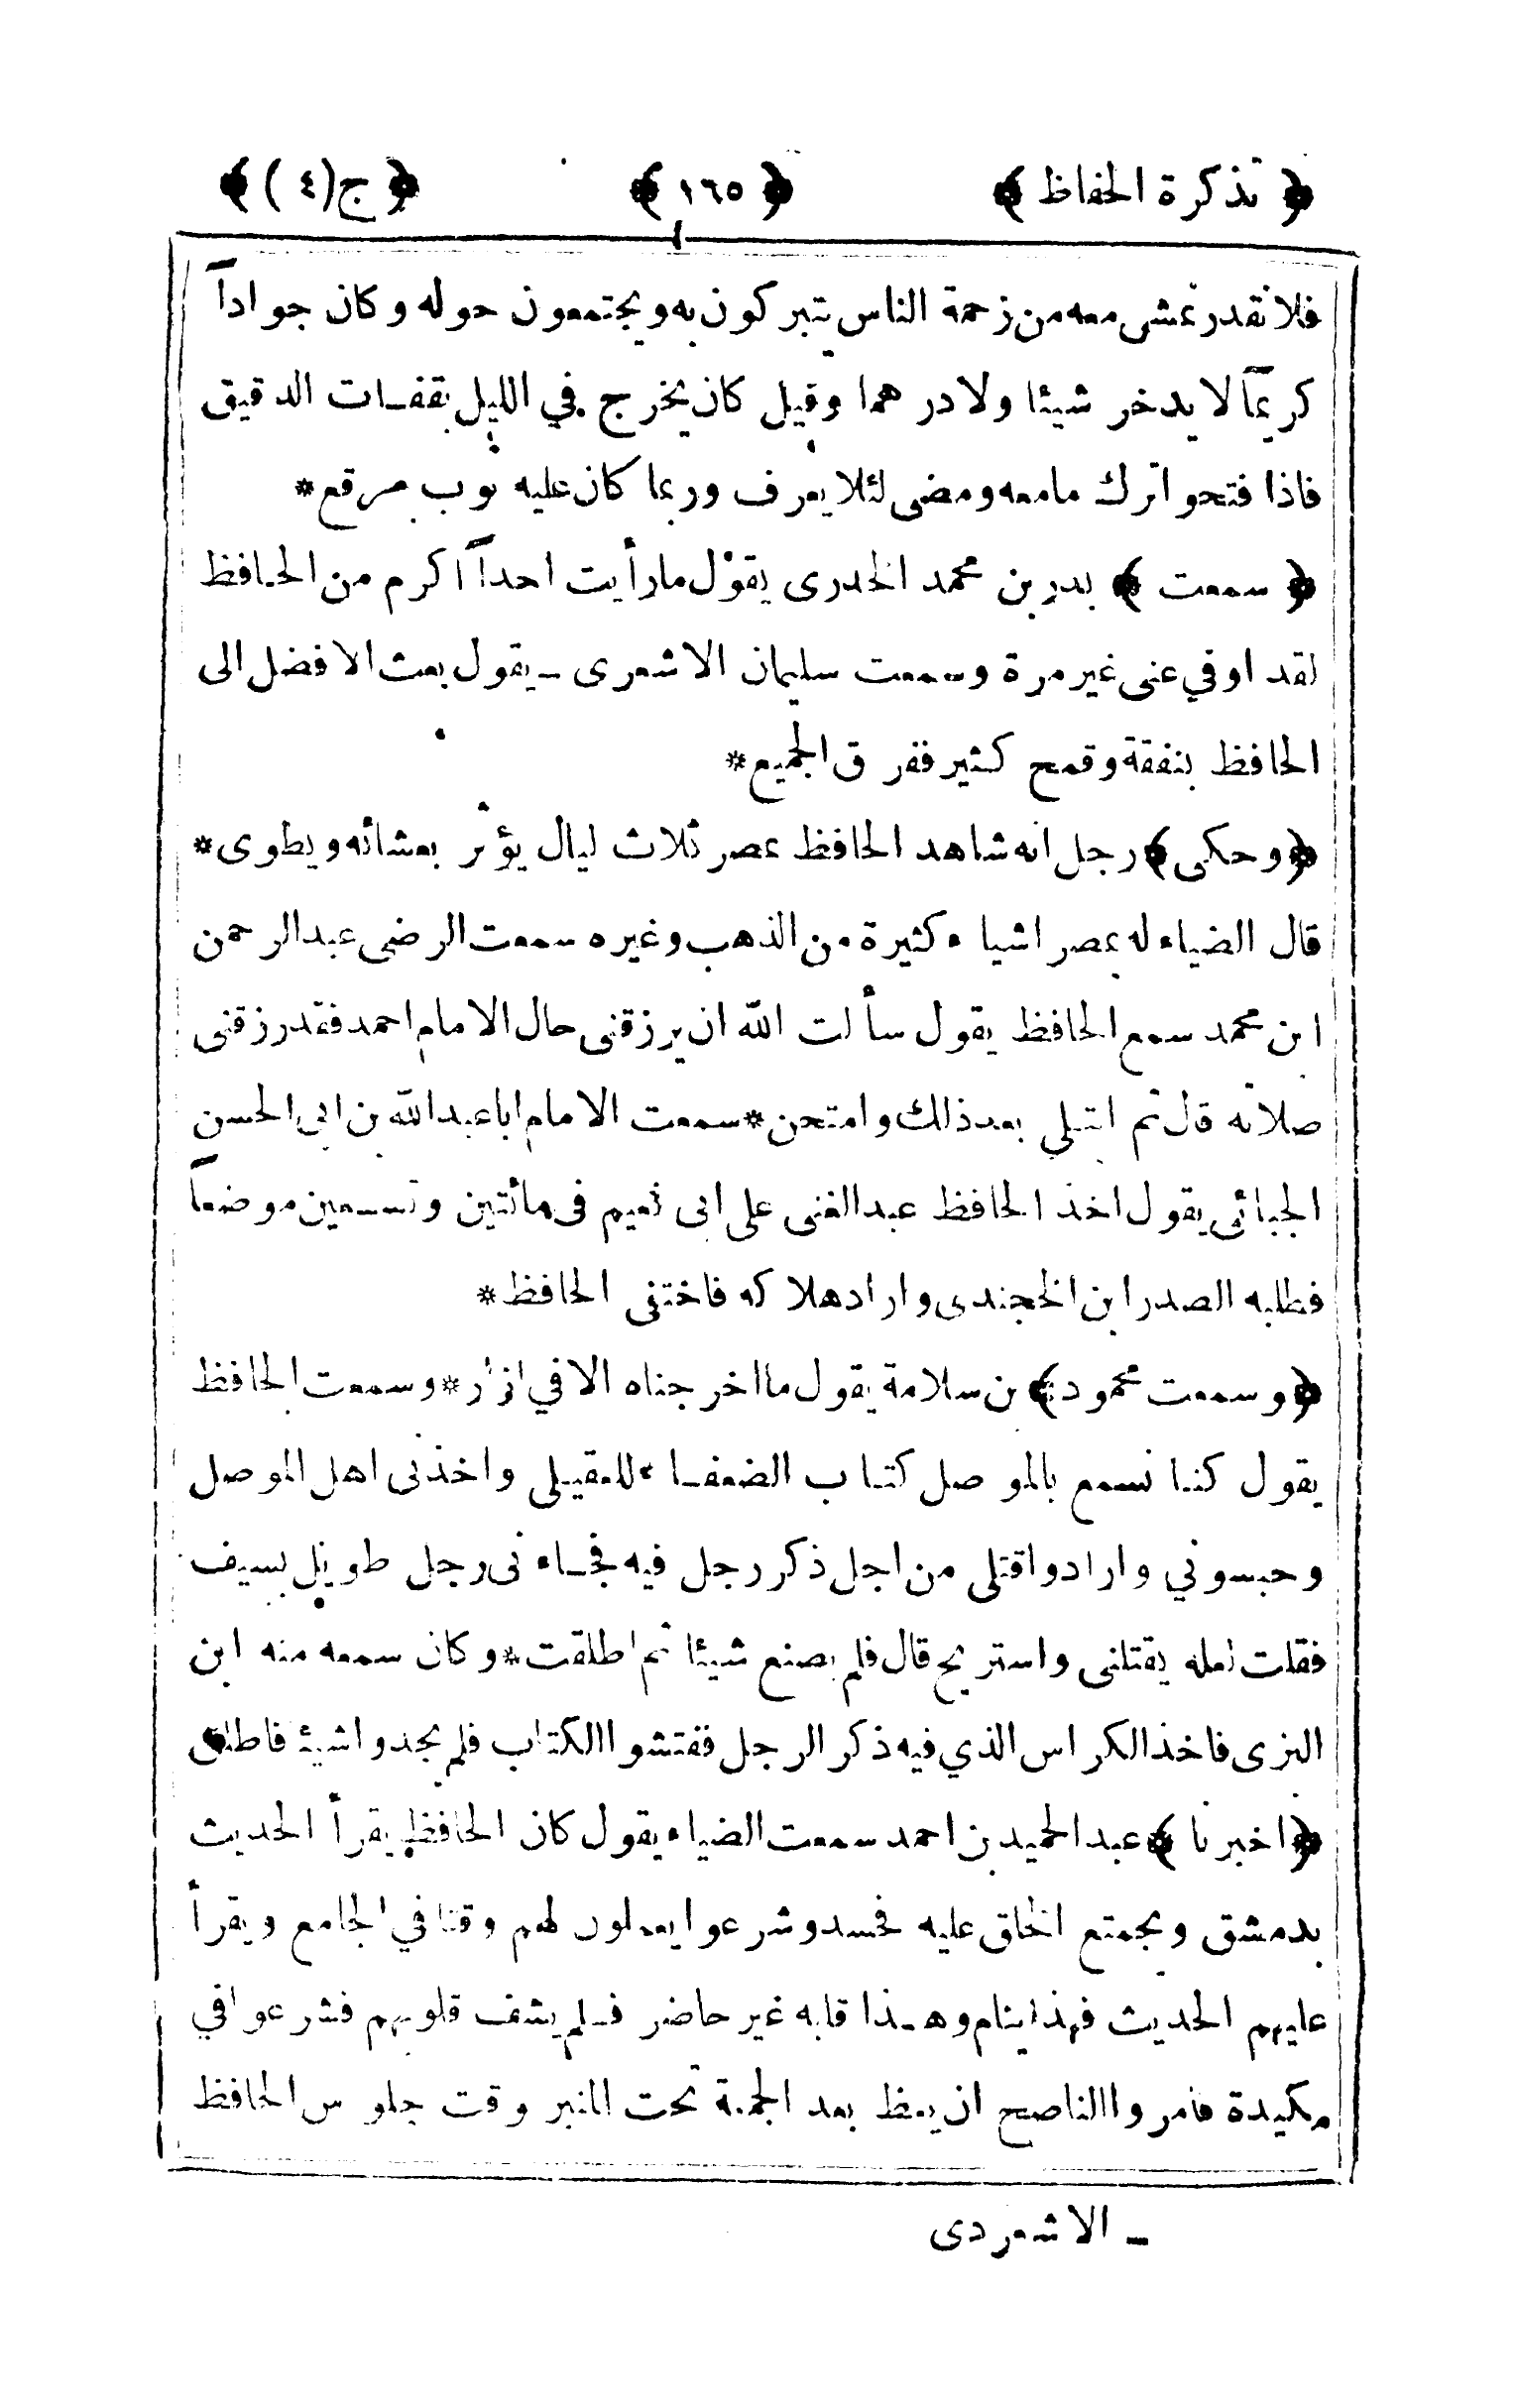 ﴿ تذكرة الحفاظ ﴾ ﴿ ١٦٥ ﴾ ﴿ ج(٤) ﴾
فلا نقدر نمشى معه من زحمة الناس يتبركون به ويجتمعون حوله وكان جواداً
كريماً لا يدخر شيئا ولا درهما وقيل كان يخرج في الليل بقفات الدقيق
فاذا فتحوا ترك ما معه ومضى لئلا يعرف وربما كان عليه ثوب مرقع*
﴿ سمعت ﴾ بدر بن محمد الخدرى يقول ما رأيت احداً اكرم من الحافظ
لقد اوفي عنى غير مرة وسمعت سليمان الاشعرى ـ يقول بعث الافضل الى
الحافظ بنفقة وقمح كثير ففرق الجميع*
﴿ وحكى ﴾ رجل انه شاهد الحافظ بمصر ثلاث ليال يؤثر بعشائه ويطوى*
قال الضياء له بمصر اشياء كثيرة من الذهب وغيره سمعت الرضى عبدالرحمن
ابن محمد سمع الحافظ يقول سألت الله ان يرزقنى حال الامام احمد فقد رزقنى
صلاته قال ثم ابتلى بعد ذلك وامتحن*سمعت الامام ابا عبدالله بن ابى الحسن
الجبائى يقول اخذ الحافظ عبدالغنى على ابى نعيم فى مائتين وتسعين موضعاً
فطلبه الصدر ابن الخجندى واراد هلاكه فاختفى الحافظ*
﴿ وسمعت محمود ﴾ بن سلامة يقول ما اخرجناه الا في ازار*وسمعت الحافظ
يقول كنا نسمع بالموصل كتاب الضعفاء للعقيلى واخذنى اهل الموصل
وحبسوني وارادوا قتلى من اجل ذكر رجل فيه فجاءنى رجل طويل بسيف
فقلت لعله يقتلنى واستريح قال فلم يصنع شيئا ثم اطلقت*وكان سمعه منه ابن
البزى فاخذ الكراس الذي فيه ذكر الرجل ففتشوا الكتاب فلم يجدوا شيئ فاطلق
﴿ اخبرنا ﴾ عبد الحميد بن احمد سمعت الضياء يقول كان الحافظ يقرأ الحديث
بدمشق ويجمتع الخلق عليه فحسد وشرعوا يعملون لهم وقتا في الجامع ويقرأ
عليهم الحديث فهذا ينام وهذا قلبه غير حاضر فلم يشف قلوبهم فشرعوا في
مكيدة فامروا الناصح ان يعظ بعد الجمعة تحت المنبر وقت جلوس الحافظ
ـ الاشعردى